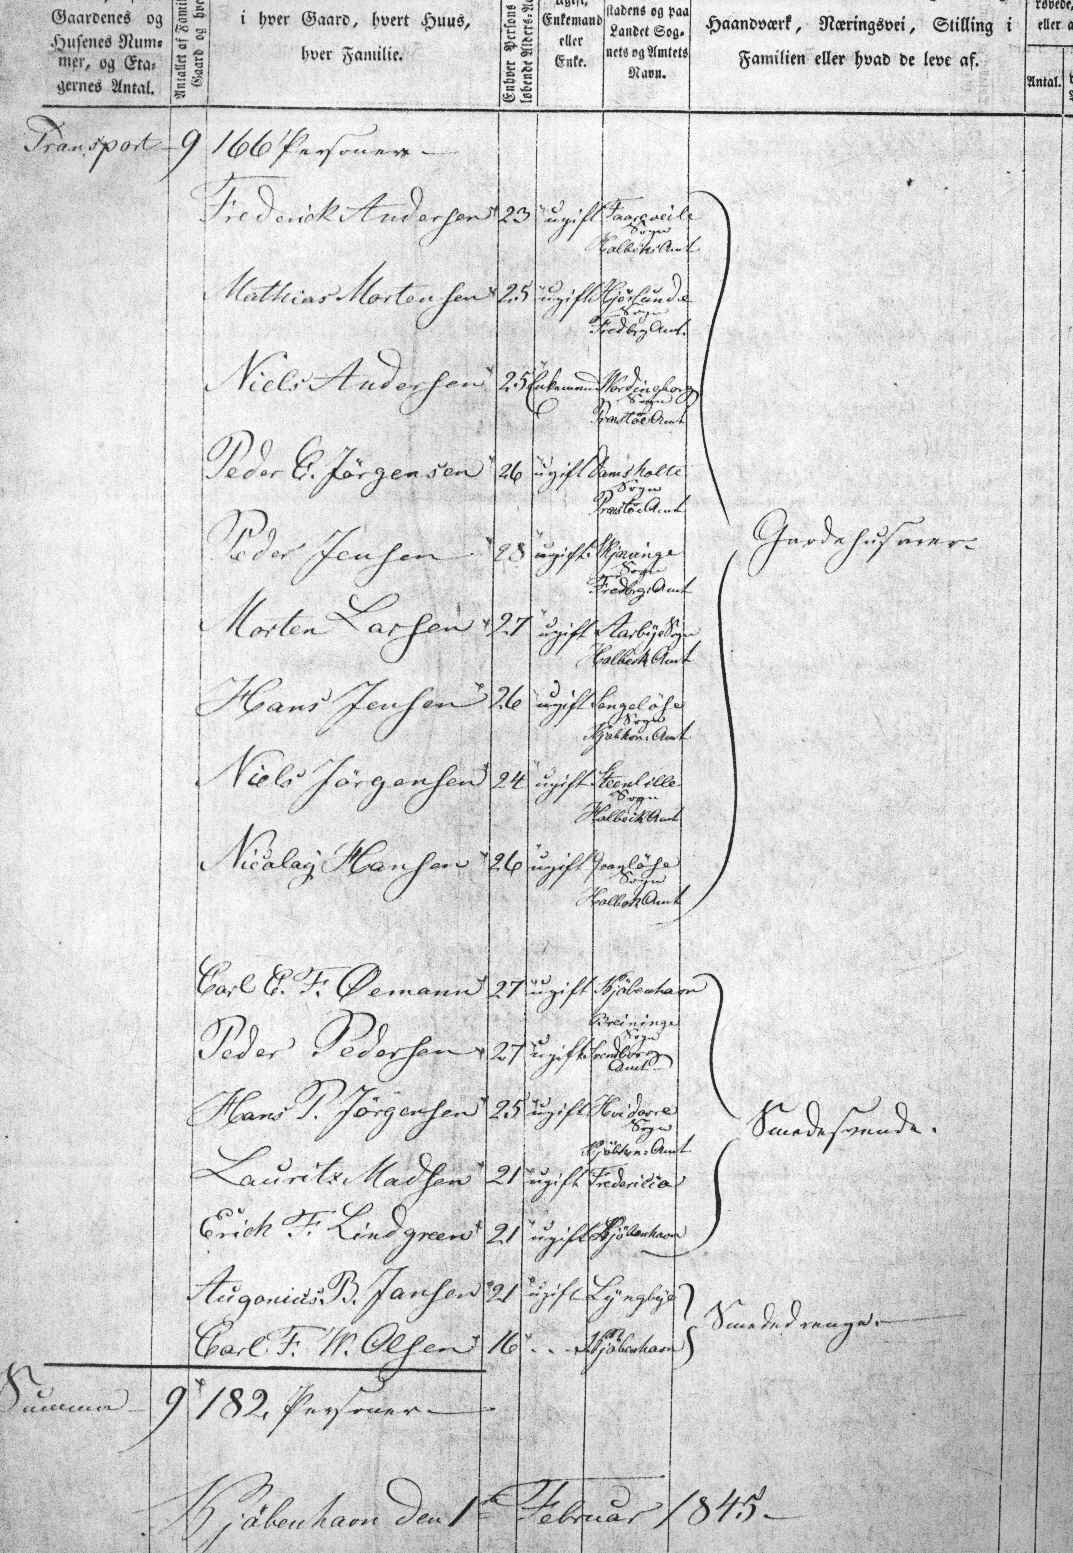 Gaardenes og
Husenes Num-
mer, og Eta-
gernes Antal.
Antallet af Famil
Gaard og hve
i hver Gaard, hvert Huus,
hver Familie.
Enhver Persons
løbende Alders-Aa
ugift,
Enkemand
eller
Enke.
stadens og paa
Landet Sog-
nets og Amtets
Navn.
Haandværk, Næringsvei, Stilling i
Familien eller hvad de leve af.
eller a
Antal.
Transport 9 166 Personer
Frederick Andersen 23 ugift Faareveile
Sogn
Holbeks Amt
Mathias Mortensen 25 ugift Hjörlunde
Sogn
Fredbrg Amt.
Niels Andersen 25 Enkemand Wordingborg
Sogn
Præstöe Amt
Peder C. Jörgensen 26 ugift Damsholte
Sogn
Præstöe Amt
Peder Jensen 28 ugift Skjævinge
Sogn
Fredbrgs Amt
Morten Larsen 27 ugift Aarbye Sogn
Holbeck Amt
Hans Jensen 26 ugift Sengelöse
Sogn
Kjøbhvn. Amt
Niels Jörgensen 24 ugift Steenlille
Sogn
Holbeck Amt
Nicolay Hansen 26 ugift Grandløse
Sogn
Holbek Amt
Gardehusarer
Carl C. F. Øemann 27 ugift Kjöbenhavn
Peder Pedersen 27 ugift Breininge
Sogn
Svendborg
Amt
Hans P. Jörgensen 25 ugift Hvidovre
Sogn
Kjöbhvn. Amt
Lauritz Madsen 21 ugift Fredericia
Erich F. Lindgreen 21 ugift Kjöbenhavn
Smedesvende.
Augonius B. Jansen 21 ugift Lyngbye
Carl F. W. Olsen 16 Kjöbenhavn
Smededrenge.
Summa 9 182, Personer
Kjöbenhavn den 1te Februar 1845